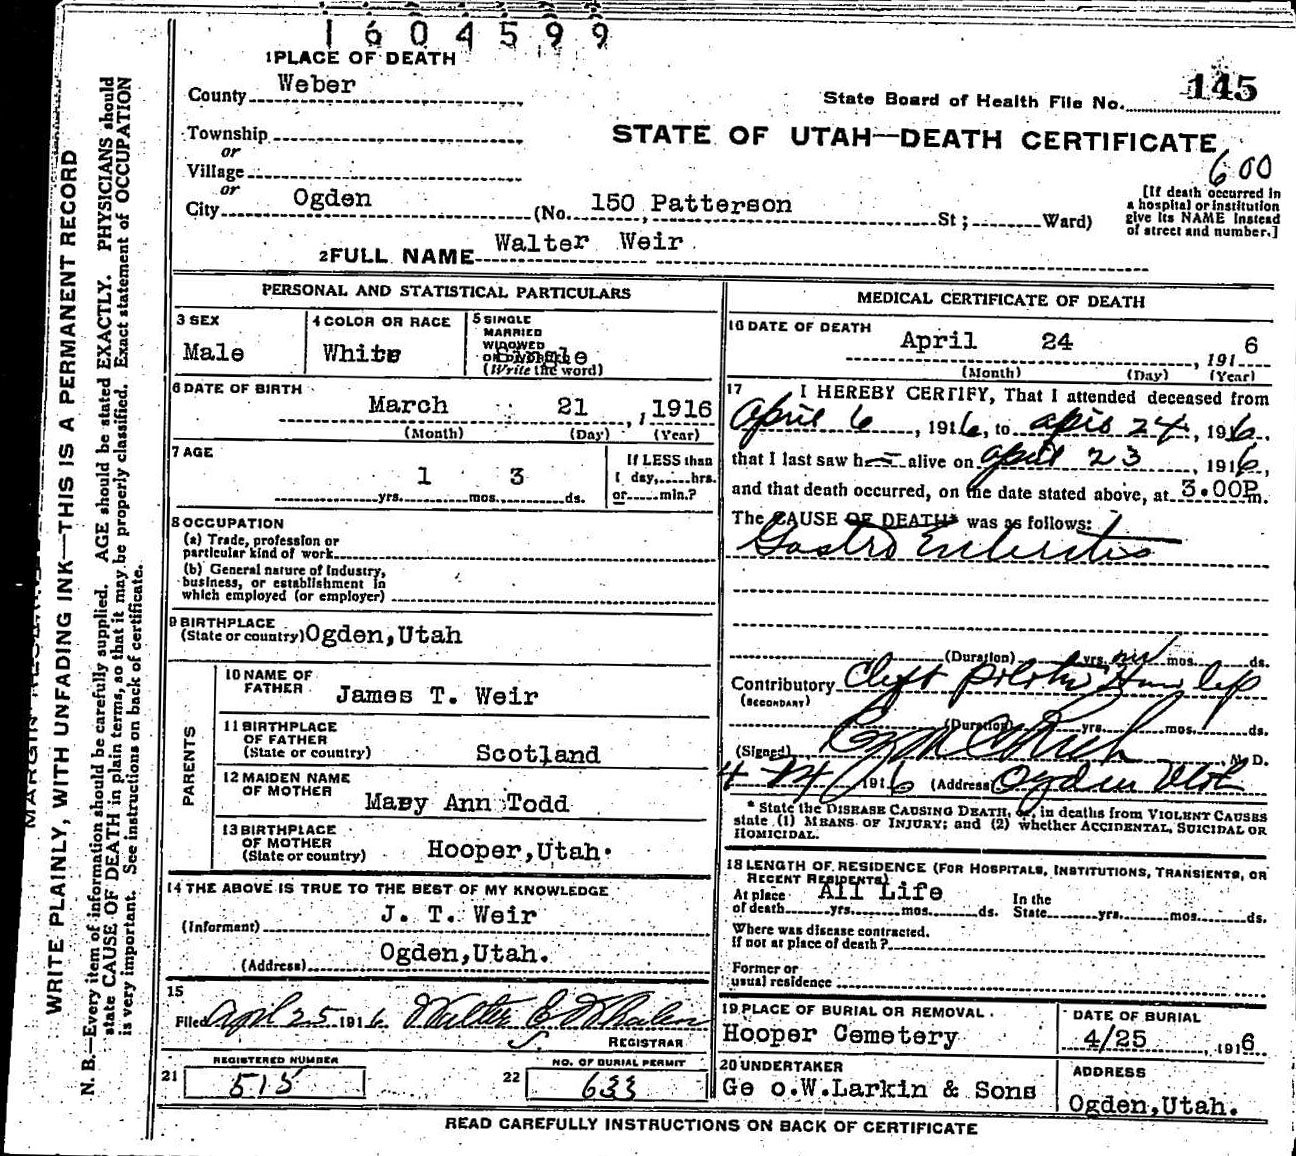 1604599
1 PLACE OF DEATH
County Weber
State Board of Health File No. 145
Township
or
Village
or
STATE OF UTAH—DEATH CERTIFICATE
600
City Ogden (No. 150 Patterson St; Ward)
[If death occurred in
a hospital or institution
give its NAME instead
of street and number.]
2 FULL NAME Walter Weir
PERSONAL AND STATISTICAL PARTICULARS
3 SEX
Male
4 COLOR OR RACE
White
5 SINGLE
MARRIED
WIDOWED
OR DIVORCED
(Write the word)
6 DATE OF BIRTH
March 21, 1916
(Month) (Day) (Year)
7 AGE
1 3
yrs. mos. ds.
If LESS than
1 day, hrs.
or min.?
8 OCCUPATION
(a) Trade, profession or
particular kind of work
(b) General nature of Industry,
business, or establishment in
which employed (or employer)
9 BIRTHPLACE
(State or country) Ogden, Utah
PARENTS
10 NAME OF
FATHER James T. Weir
11 BIRTHPLACE
OF FATHER
(State or country) Scotland
12 MAIDEN NAME
OF MOTHER Mary Ann Todd
13 BIRTHPLACE
OF MOTHER
(State or country) Hooper, Utah.
14 THE ABOVE IS TRUE TO THE BEST OF MY KNOWLEDGE
(Informant) J. T. Weir
(Address) Ogden, Utah.
15
Filed April 25 1916 Walter E. Whalen
REGISTRAR
REGISTERED NUMBER
21 515
NO. OF BURIAL PERMIT
22 633
MEDICAL CERTIFICATE OF DEATH
16 DATE OF DEATH
April 24 191 6
(Month) (Day) (Year)
17 I HEREBY CERTIFY, That I attended deceased from
April 6, 1916, to April 24, 1916.
that I last saw h alive on April 23, 1916,
and that death occurred, on the date stated above, at 3.00P m.
The CAUSE OF DEATH* was as follows:
Gastro Enteritis
(Duration) yrs. mos. ds.
Contributory Cleft Hare lip
(SECONDARY)
(Duration) yrs. mos. ds.
(Signed) M. D.
4-24 1916 (Address) Ogden Utah
* State the DISEASE CAUSING DEATH, or, in deaths from VIOLENT CAUSES
state (1) MEANS OF INJURY; and (2) whether ACCIDENTAL, SUICIDAL OR
HOMICIDAL.
18 LENGTH OF RESIDENCE (FOR HOSPITALS, INSTITUTIONS, TRANSIENTS, OR
RECENT RESIDENTS)
At place All Life In the
of death yrs. mos. ds. State yrs. mos. ds.
Where was disease contracted,
if not at place of death?
Former or
usual residence
19 PLACE OF BURIAL OR REMOVAL
Hooper Cemetery
DATE OF BURIAL
4/25, 1916
20 UNDERTAKER
Geo.W.Larkin & Sons
ADDRESS
Ogden, Utah.
READ CAREFULLY INSTRUCTIONS ON BACK OF CERTIFICATE
WRITE PLAINLY, WITH UNFADING INK—THIS IS A PERMANENT RECORD
N. B.—Every item of information should be carefully supplied. AGE should be stated EXACTLY. PHYSICIANS should
state CAUSE OF DEATH in plain terms, so that it may be properly classified. Exact statement of OCCUPATION
is very important. See instructions on back of certificate.